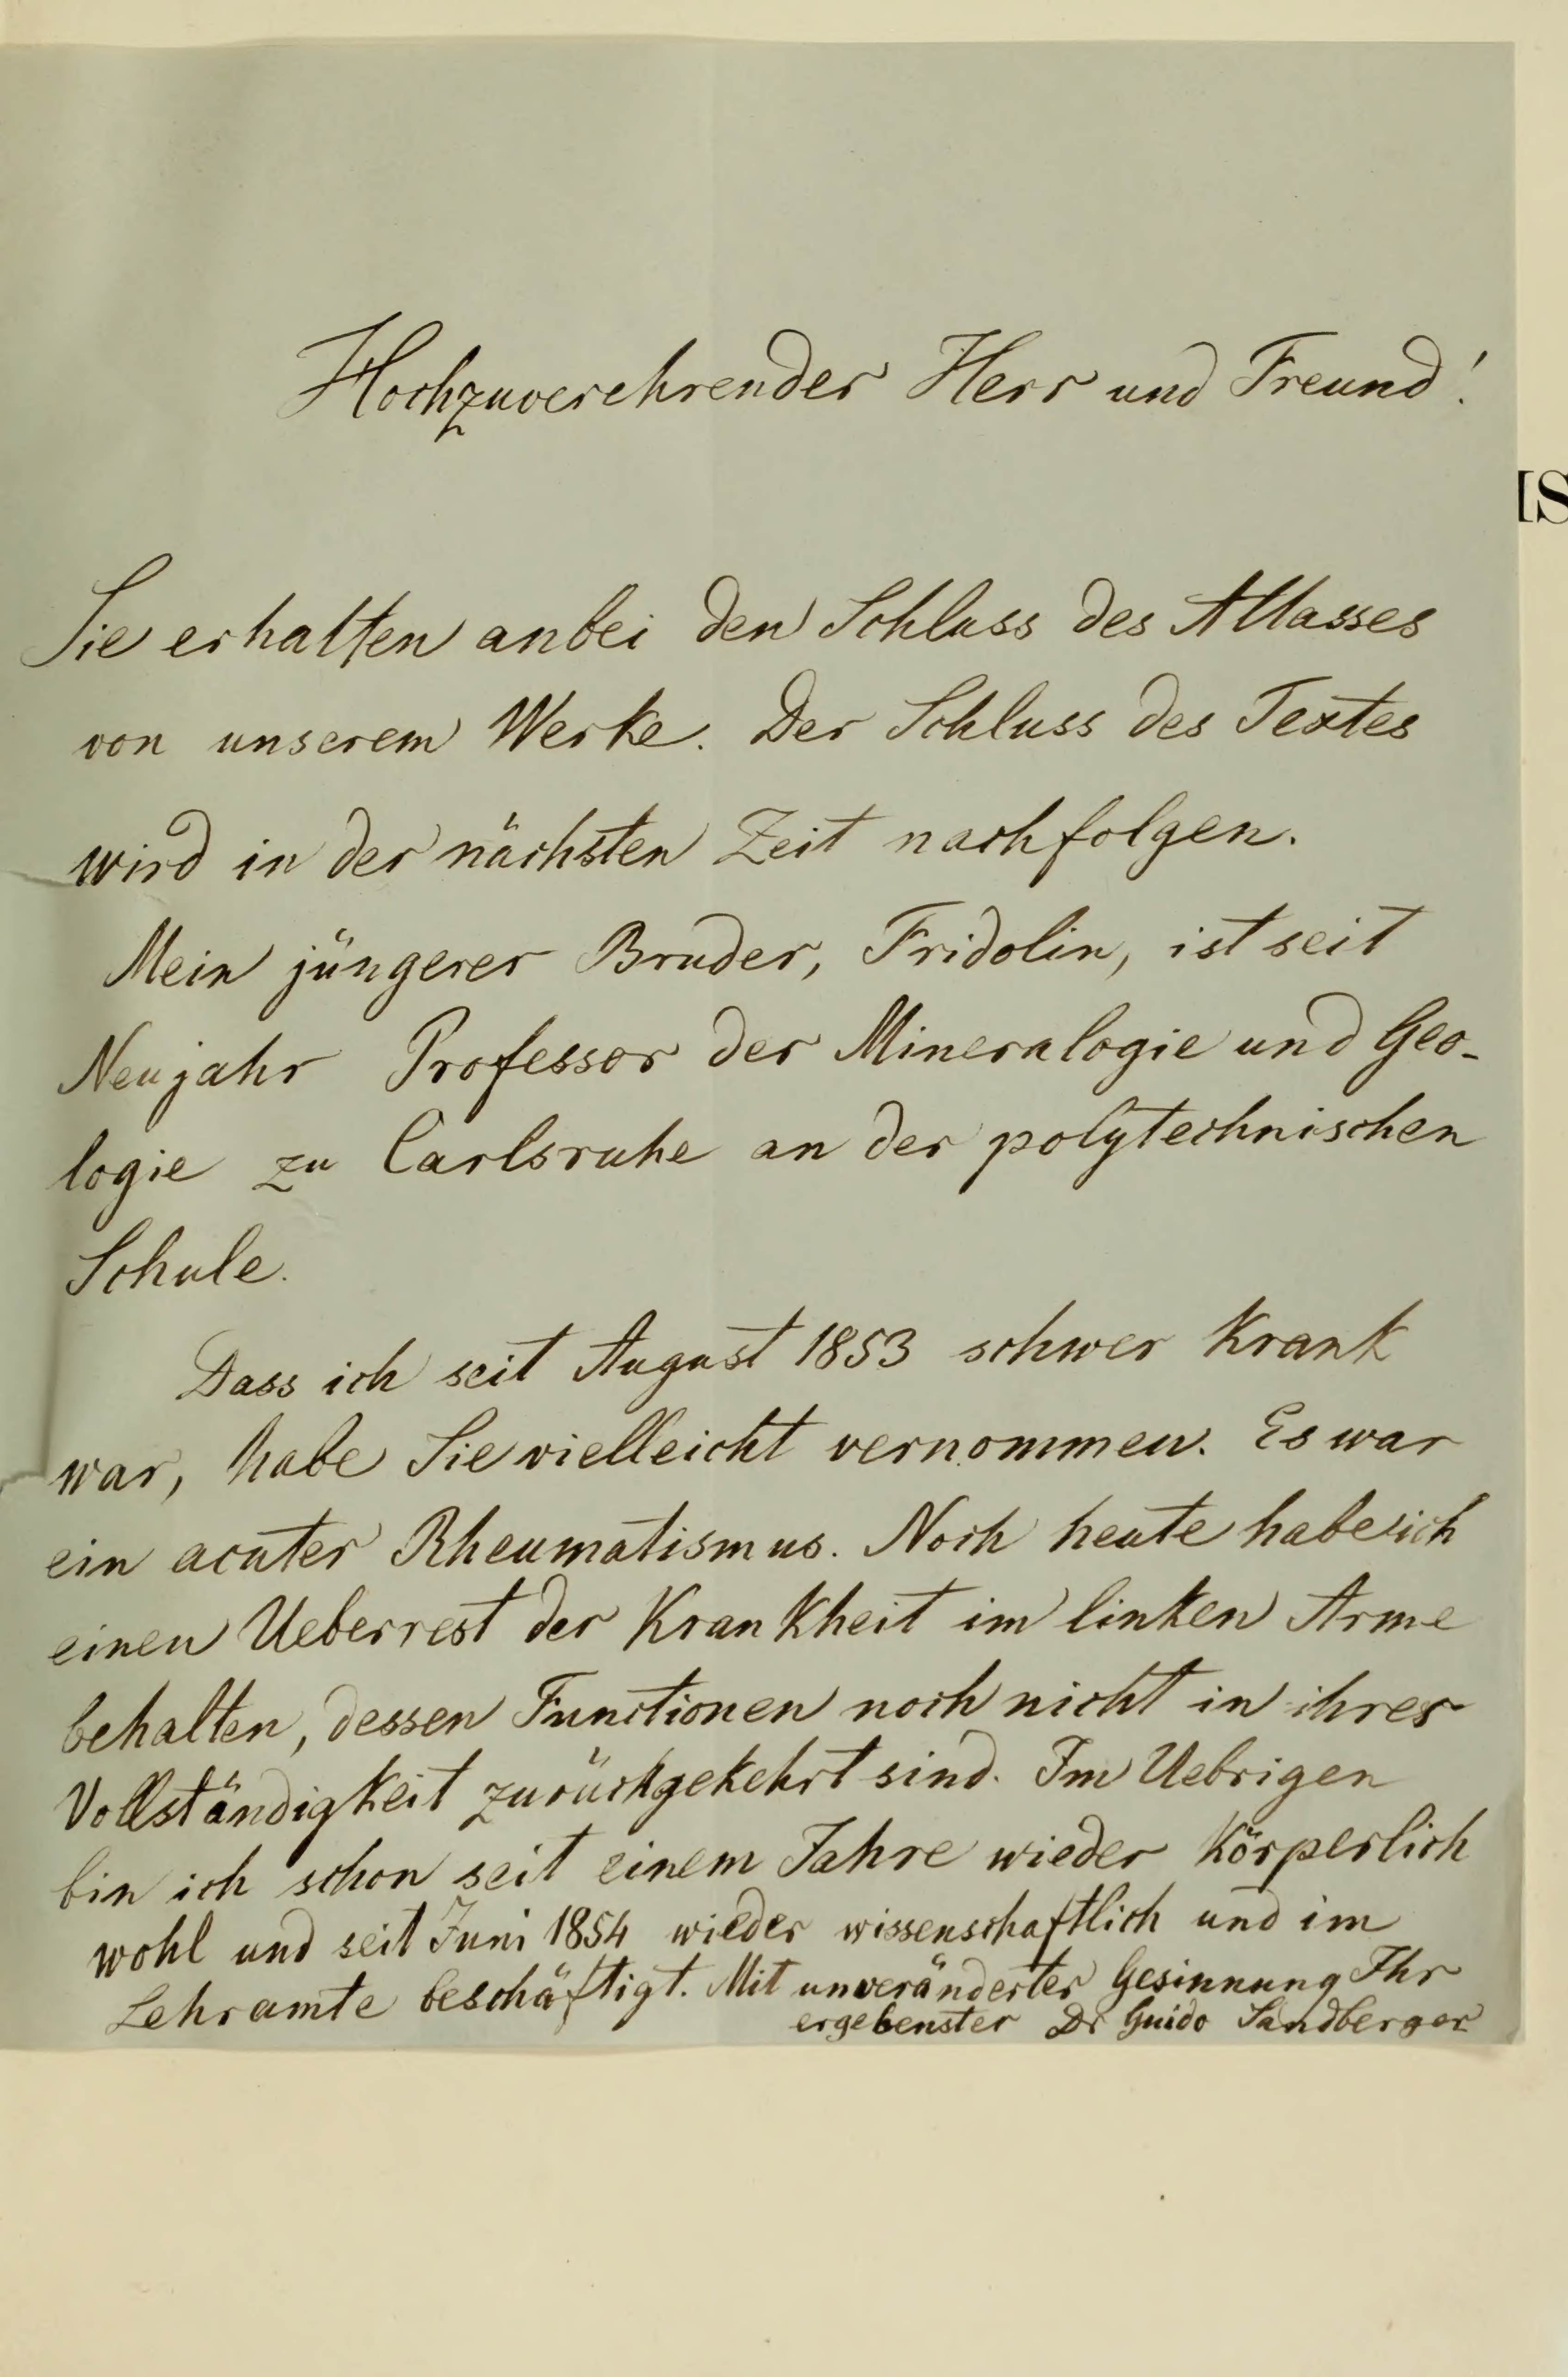 Hochzuverehrender Herr und Freund!
[S
Sie erhalten anbei den Schluss des Atlasses
von unserem Werke. Der Schluss des Textes
wird in der nächsten Zeit nachfolgen.
Mein jüngerer Bruder, Fridolin, ist seit
Neujahr Professor der Mineralogie und Geo-
logie zu Carlsruhe an der polytechnischen
Schule.
Dass ich seit August 1853 schwer krank
war, habe Sie vielleicht vernommen. Es war
ein acuter Rheumatismus. Noch heute habe ich
einen Ueberrest der Krankheit im linken Arme
behalten, dessen Functionen noch nicht in ihrer
Vollständigkeit zurückgekehrt sind. Im Uebrigen
bin ich schon seit einem Jahre wieder körperlich
wohl und seit Juni 1854 wieder wissenschaftlich und im
Lehramte beschäftigt. Mit unveränderter Gesinnung Ihr
ergebenster Dr Guido Sandberger